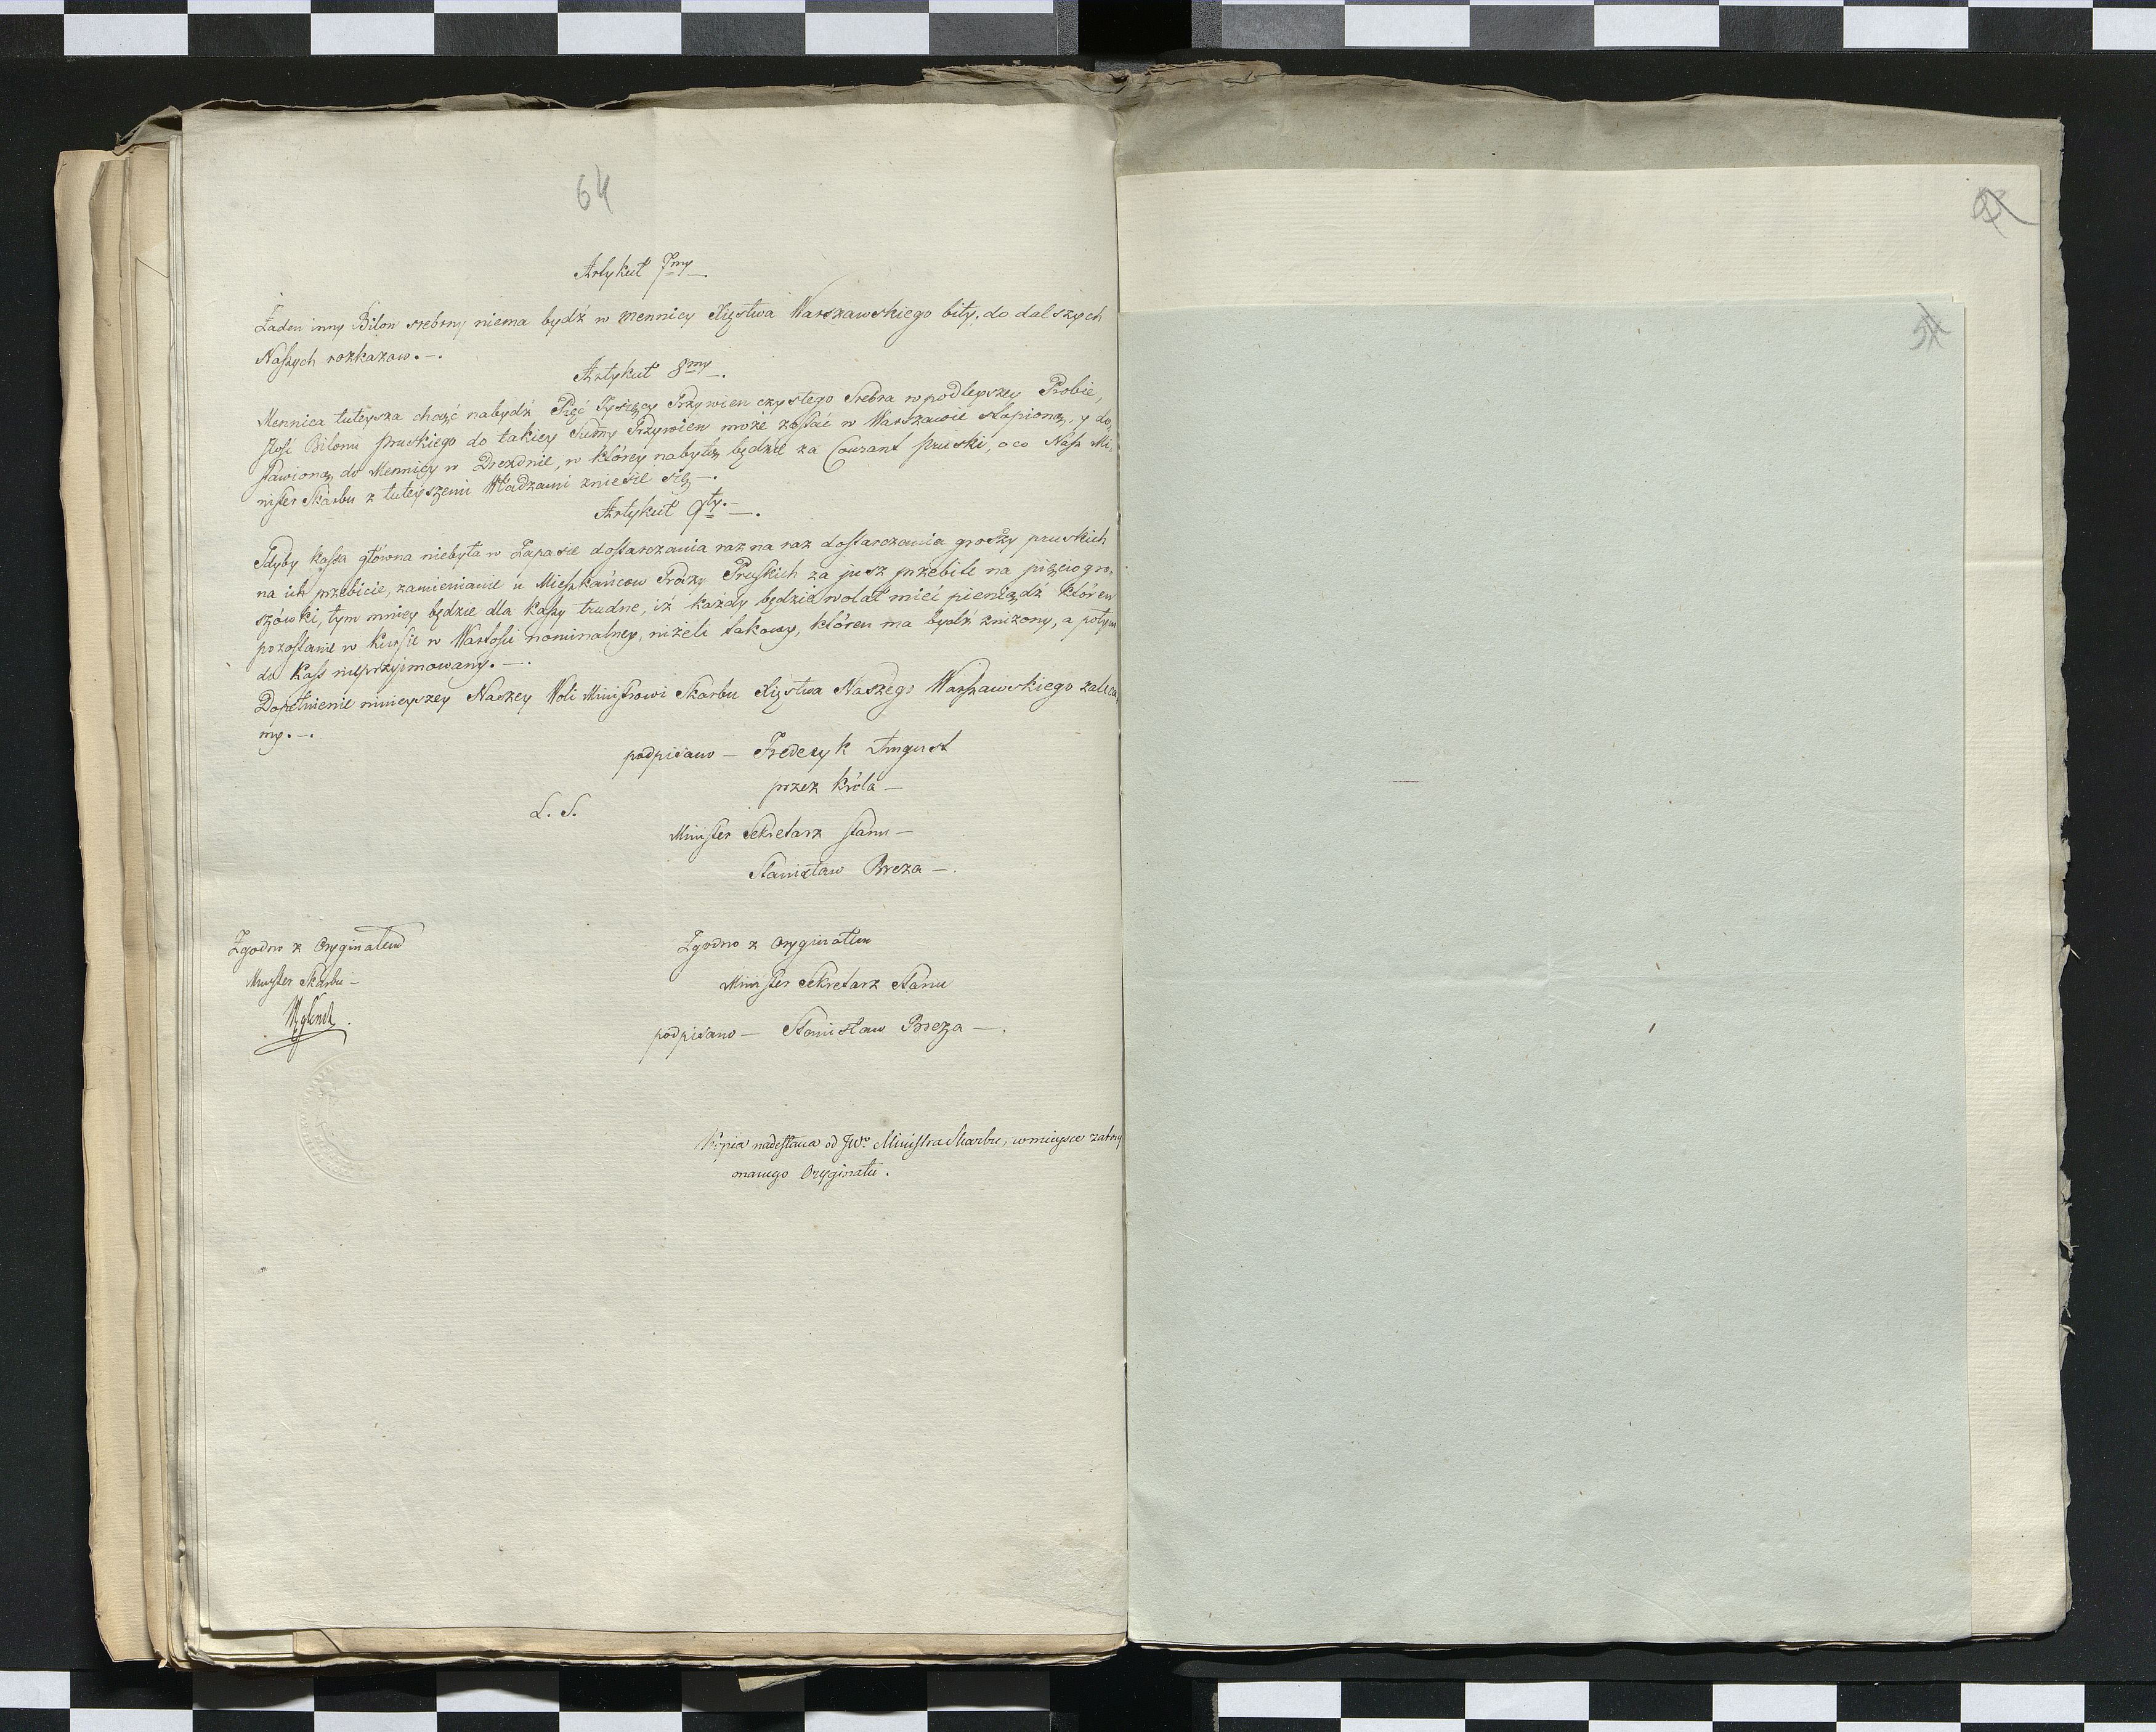 64
Artykuł 7my
Żaden inny Bilon srebrny niema bydź w mennicy Xięstwa Warszawskiego bity, do dalszych
Naszych rozkazow.
Artykuł 8my
Mennica tuteysza chcąć nabydź Pięć Tysięcy Grzywien czystego Srebra w podleyszey Probie,
Ilość Bilonu pruskiego do takiey Summy Grzywien może zostać w Warszawie stopioną, y do-
stawioną do Mennicy w Dreznie, w którey nabytą będzie za Courant pruski, o co Nasz Mi-
nister Skarbu z tuteyszemi Władzami zniesie się.
Artykuł 9ty
Gdyby kassa główna niebyła w Zapasie dostarczania raz na raz dostarczania groszy pruskich
na ich przebicie, zamienianie u Mieszkańcow Groszy Pruskich za jusz przebite na pięciogro-
szówki, tym mniey będzie dla kassy trudne, iż każdy będzie wolał mieć pieniądz któren
pozostanie w kursie w Wartości nominalney, niżeli takowy, któren ma bydź zniżony, a potym
do kass nieprzyjmowany.
Dopełnienie ninieyszey Naszey Woli Ministrowi Skarbu Xięstwa Naszego Warszawskiego zaleca-
my.
podpisano — Frederyk August
przez Króla —
L. S.
Minister Sekretarz Stanu —
Stanisław Breza —
Zgodno z Oryginałem
Minister Skarbu —
Zgodno z Oryginałem
Minister Sekretarz Stanu
podpisano — Stanisław Breza —
Kopia nadesłana od JWo Ministra Skarbu, w mieysce zatrzy
manego Oryginału.